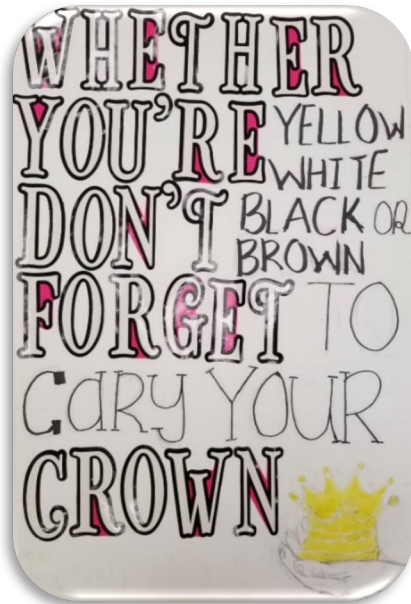 WHETHER
YOU'RE YELLOW
WHITE
DON'T BLACK OR
BROWN
FORGET TO
CARY YOUR
CROWN